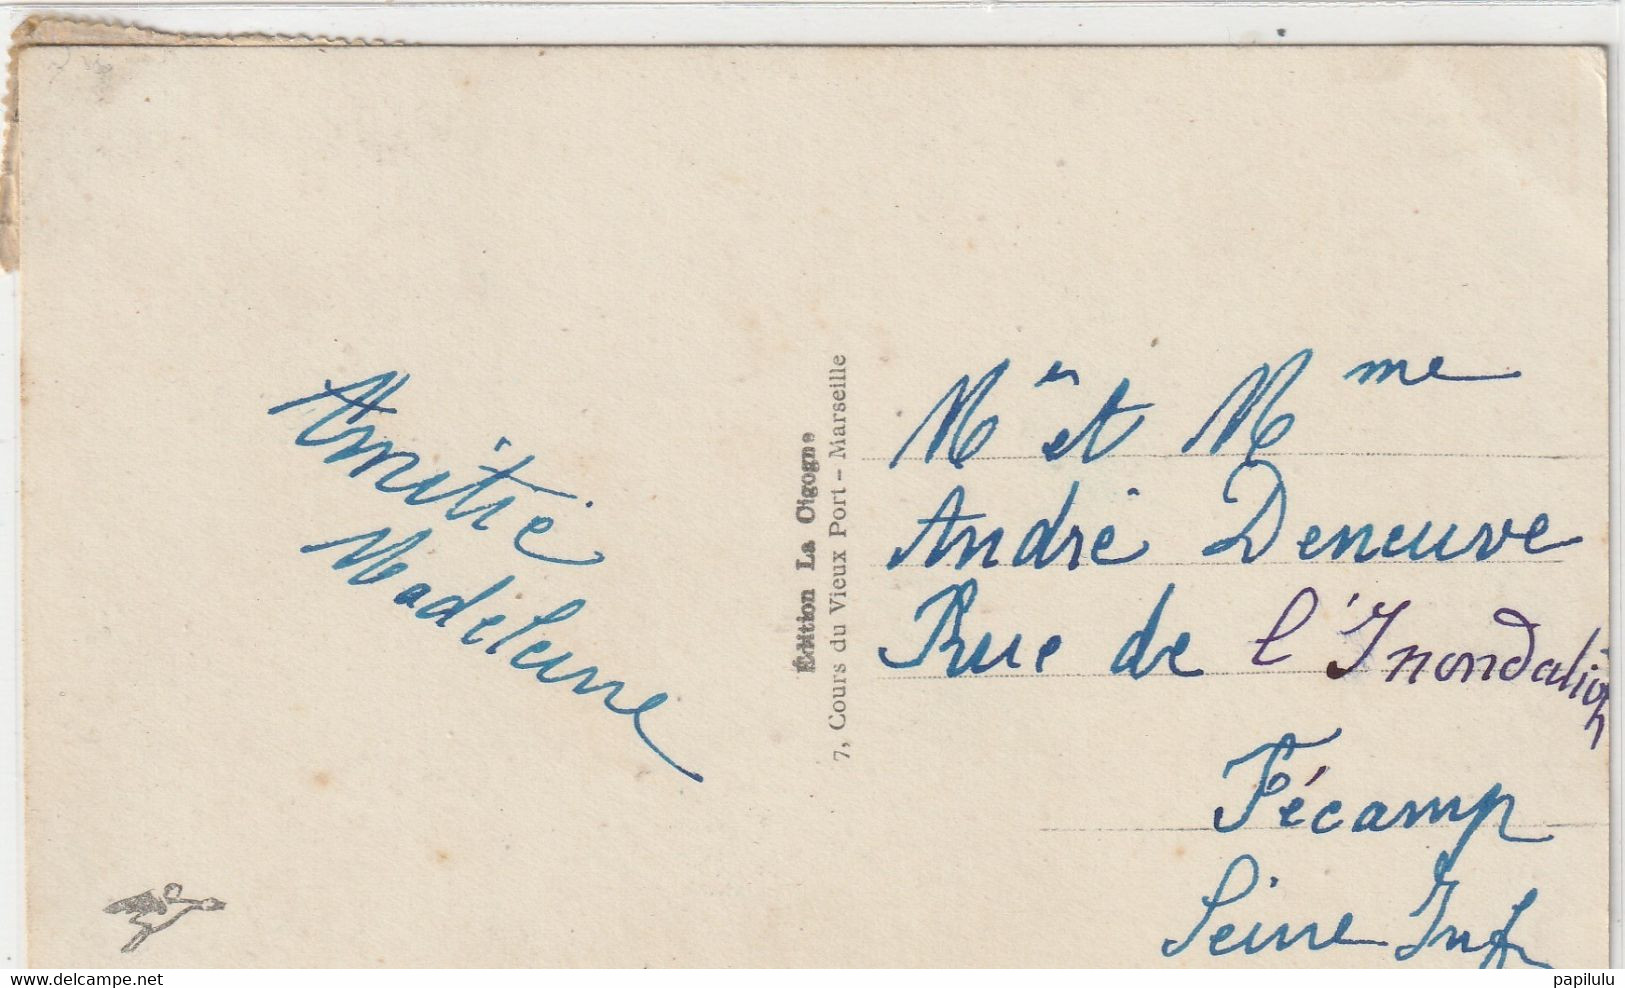 Amitié
Madeleine
Édition La Cigogne
7, Cours du Vieux Port - Marseille
Mr et Mme
André Deneuve
Rue de l'Inondation
Fécamp
Seine Inf
www.delcampe.net
papilulu